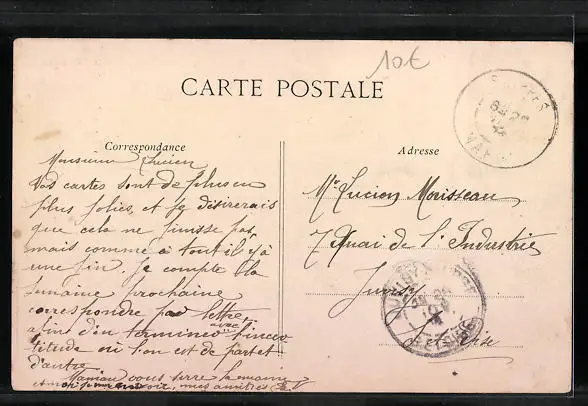 10€
CARTE POSTALE
Correspondance
Adresse
Monsieur Lucien
Vos cartes sont de plus en
plus jolies, et je désirerais
que cela ne finisse pas
mais comme à tout il y a
une fin. Je compte la
semaine prochaine
correspondre par lettre
afin d'en terminer avec l'incer
titude où l'on est de part et
d'autre
Maman vous serre la main
mes amitiés
Mr Lucien Morisseau
7 Quai de l'Industrie
Juvisy
Set Oise